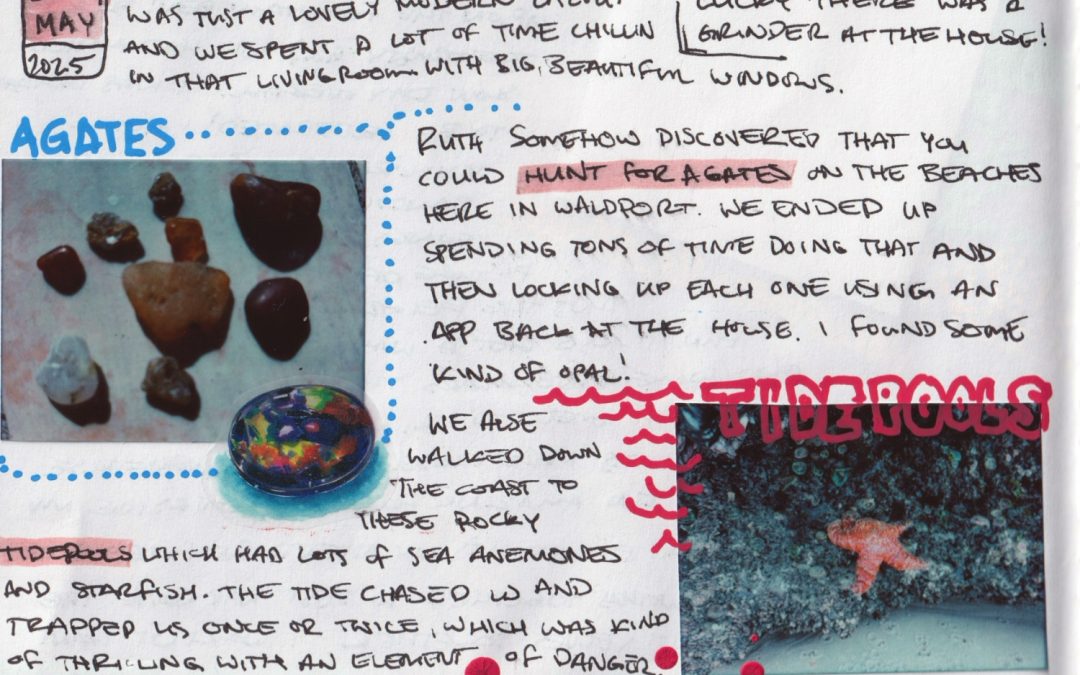 MAY
2025
WAS JUST A LOVELY MODERN LAYOUT
AND WE SPENT A LOT OF TIME CHILLIN
IN THAT LIVINGROOM WITH BIG, BEAUTIFUL WINDOWS.
LUCKY THERE WAS A
GRINDER AT THE HOUSE!
AGATES
RUTH SOMEHOW DISCOVERED THAT YOU
COULD HUNT FOR AGATES ON THE BEACHES
HERE IN WALDPORT. WE ENDED UP
SPENDING TONS OF TIME DOING THAT AND
THEN LOOKING UP EACH ONE USING AN
APP BACK AT THE HOUSE. I FOUND SOME
KIND OF OPAL!
TIDEPOOLS
WE ALSE
WALKED DOWN
THE COAST TO
THESE ROCKY
TIDEPOOLS WHICH HAD LOTS OF SEA ANEMONES
AND STARFISH. THE TIDE CHASED US AND
TRAPPED US ONCE OR TWICE, WHICH WAS KIND
OF THRILLING WITH AN ELEMENT OF DANGER.